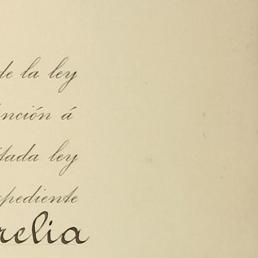 de la ley
nción á
tada ley
pediente
relia